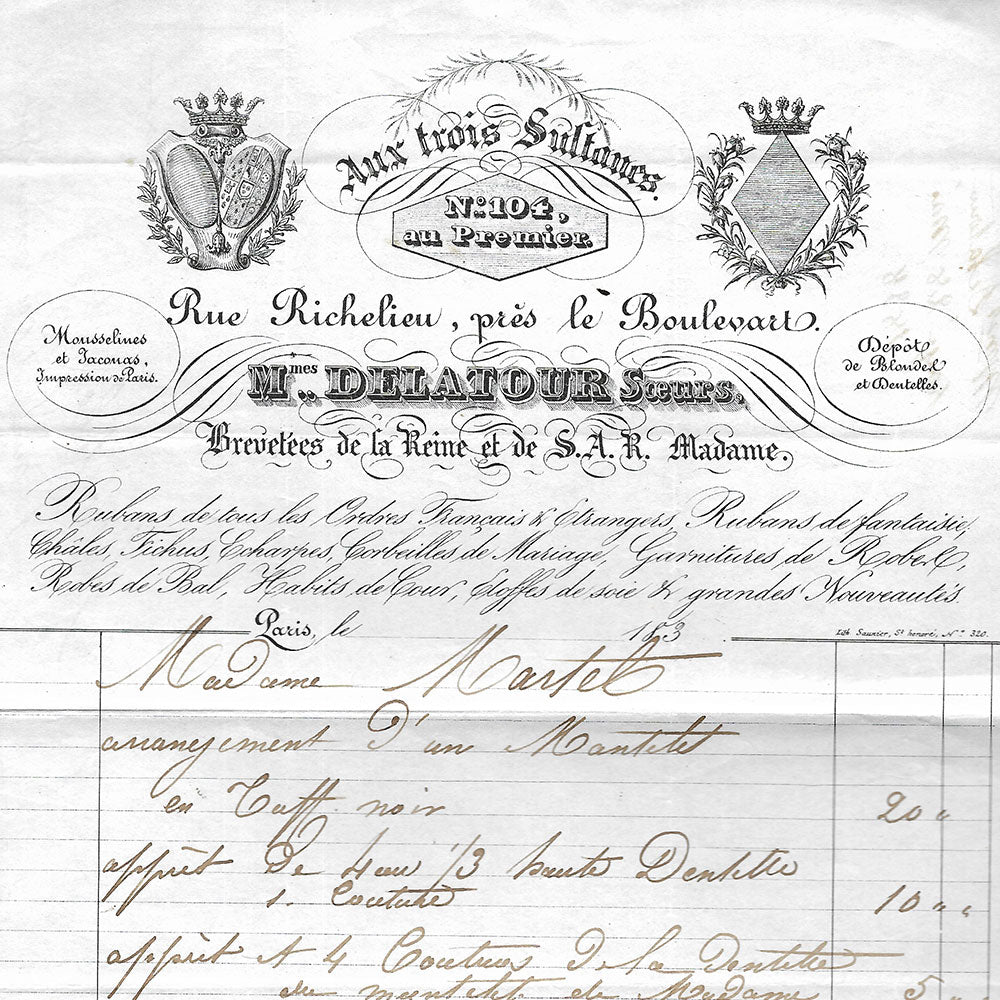 Aux trois Sultanes.
N.º 104,
au Premier.
Rue Richelieu, près le Boulevart.
Mousselines
et Jaconas,
Impression de Paris.
Dépôt
de Blondes
et Dentelles.
M.mes DELATOUR Sœurs,
Brevetées de la Reine et de S.A.R. Madame.
Rubans de tous les Ordres Français & Etrangers, Rubans de fantaisie,
Châles, Fichus, Echarpes, Corbeilles de Mariage, Garnitures de Robes,
Robes de Bal, Habits de Cour, Etoffes de soie & grandes Nouveautés.
Paris, le 183
Lith. Saunier, St honoré, No. 320.
Madame Martel
arrangement d'un Mantelet
en Taff noir 20 "
apprêt de 4 au 1/3 haute Dentelle
1. Couture 10 " "
apprèt et 4 Coutures de la dentelle
du mantelet de Madame 5